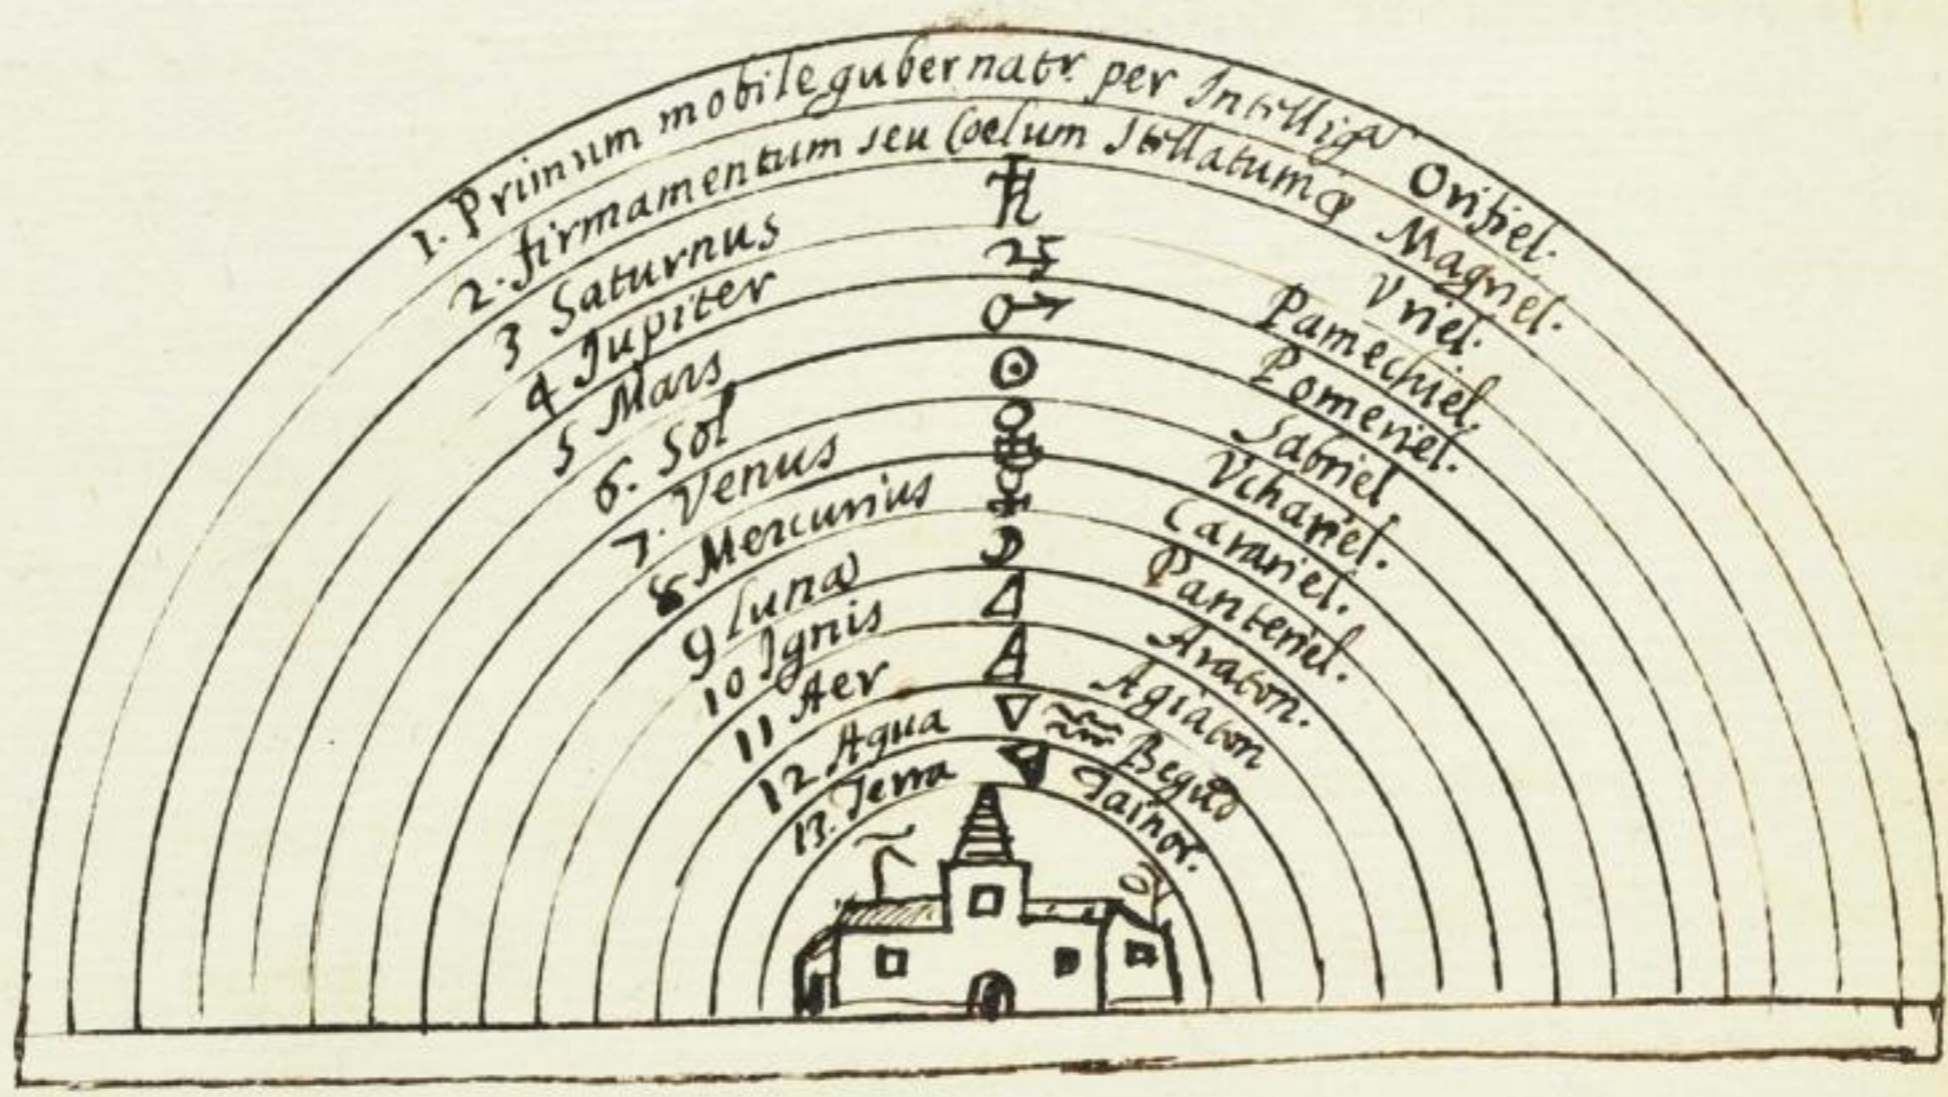 1. Primum mobile gubernatr. per Intellig Orifiel.
2. firmamentum seu Coelum Stellatum Magriel.
3 Saturnus ♄ Vriel.
4 Jupiter ♃ Pamechiel.
5 Mars ♂ Pomeriel.
6. Sol ☉ Sabriel
7. Venus ♀ Vchariel.
8 Mercurius ☿ Carariel.
9 Luna ☽ Panteriel.
10 Ignis Araton.
11 Aer Agiaton
12 Aqua Begud
13. Terra Tainor.